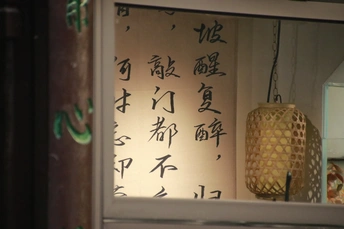 坡醒复醉，归
，敲门都不
，何时忘却
心